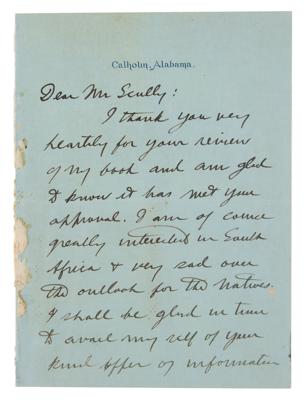 Calhoun, Alabama.
Dear Mr Scully:
I thank you very
heartily for your review
of my book and am glad
to know it has met your
approval. I am of course
greatly interested in South
Africa & very sad over
the outlook for the Natives.
I shall be glad in time
to avail my self of your
kind offer of information